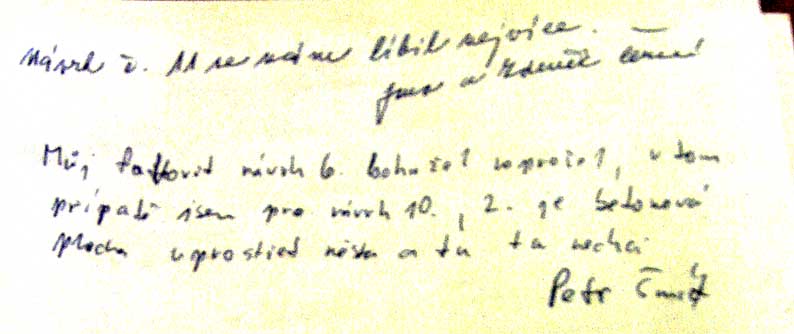 Návrh č. 11 se nám líbil nejvíce.
Jana a Zdeněk Černí
Můj favorit návrh 6. bohužel neprošel, v tom
případě jsem pro návrh 10., 2. je betonová
plocha uprostřed města a tu tu nechci
Petr